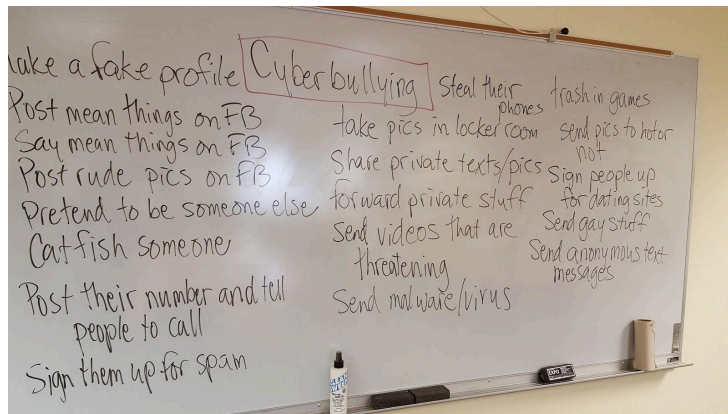 ake a fake profile
Cyberbullying
Post mean things on FB
Say mean things on FB
Post rude pics on FB
Pretend to be someone else
Catfish someone
Post their number and tell
people to call
Sign them up for spam
Steal their
phones
take pics in locker room
Share private texts/pics
forward private stuff
Send videos that are
threatening
Send malware/virus
trash in games
send pics to hotor
not
Sign people up
for dating sites
Send gay stuff
Send anonymous text
messages
EXPO